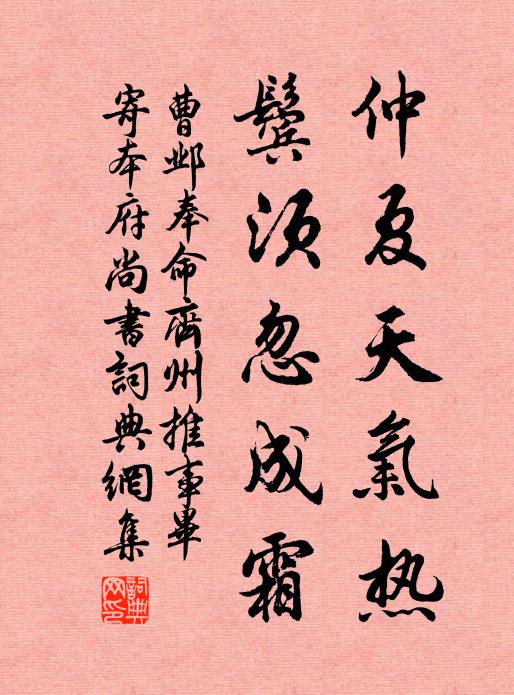 仲夏天氣热
鬓须忽成霜
曹邺奉命齊州推事畢
寄本府尚書詞典網集
詞典網印